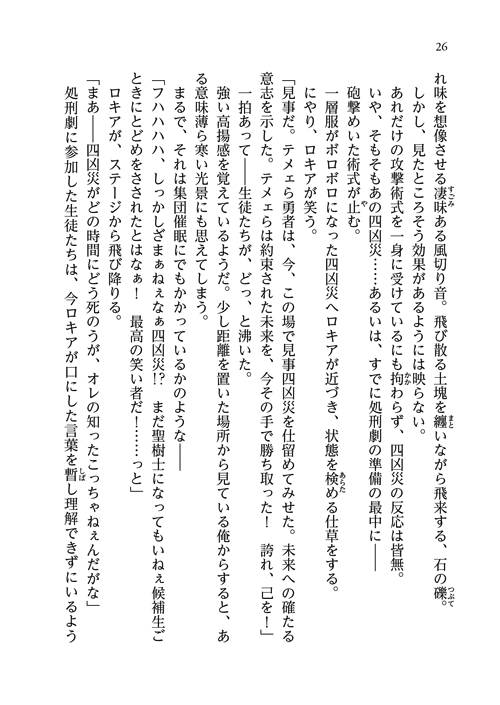 26
れ味を想像させる凄味ある風切り音。飛び散る土塊を纏いながら飛来する、石の礫。
しかし、見たところそう効果があるようには映らない。
あれだけの攻撃術式を一身に受けているにも拘わらず、四凶災の反応は皆無。
いや、そもそもあの四凶災……あるいは、すでに処刑劇の準備の最中に――
砲撃めいた術式が止む。
一層服がボロボロになった四凶災へロキアが近づき、状態を検める仕草をする。
にやり、ロキアが笑う。
「見事だ。テメェら勇者は、今、この場で見事四凶災を仕留めてみせた。未来への確たる
意志を示した。テメェらは約束された未来を、今その手で勝ち取った！　誇れ、己を！」
一拍あって――生徒たちが、どっ、と沸いた。
強い高揚感を覚えているようだ。少し距離を置いた場所から見ている俺からすると、あ
る意味薄ら寒い光景にも思えてしまう。
まるで、それは集団催眠にでもかかっているかのような――
「フハハハハ、しっかしざまぁねぇなぁ四凶災!?　まだ聖樹士になってもいねぇ候補生ご
ときにとどめをさされたとはなぁ！　最高の笑い者だ！……っと」
ロキアが、ステージから飛び降りる。
「まあ――四凶災がどの時間にどう死のうが、オレの知ったこっちゃねぇんだがな」
処刑劇に参加した生徒たちは、今ロキアが口にした言葉を暫し理解できずにいるよう